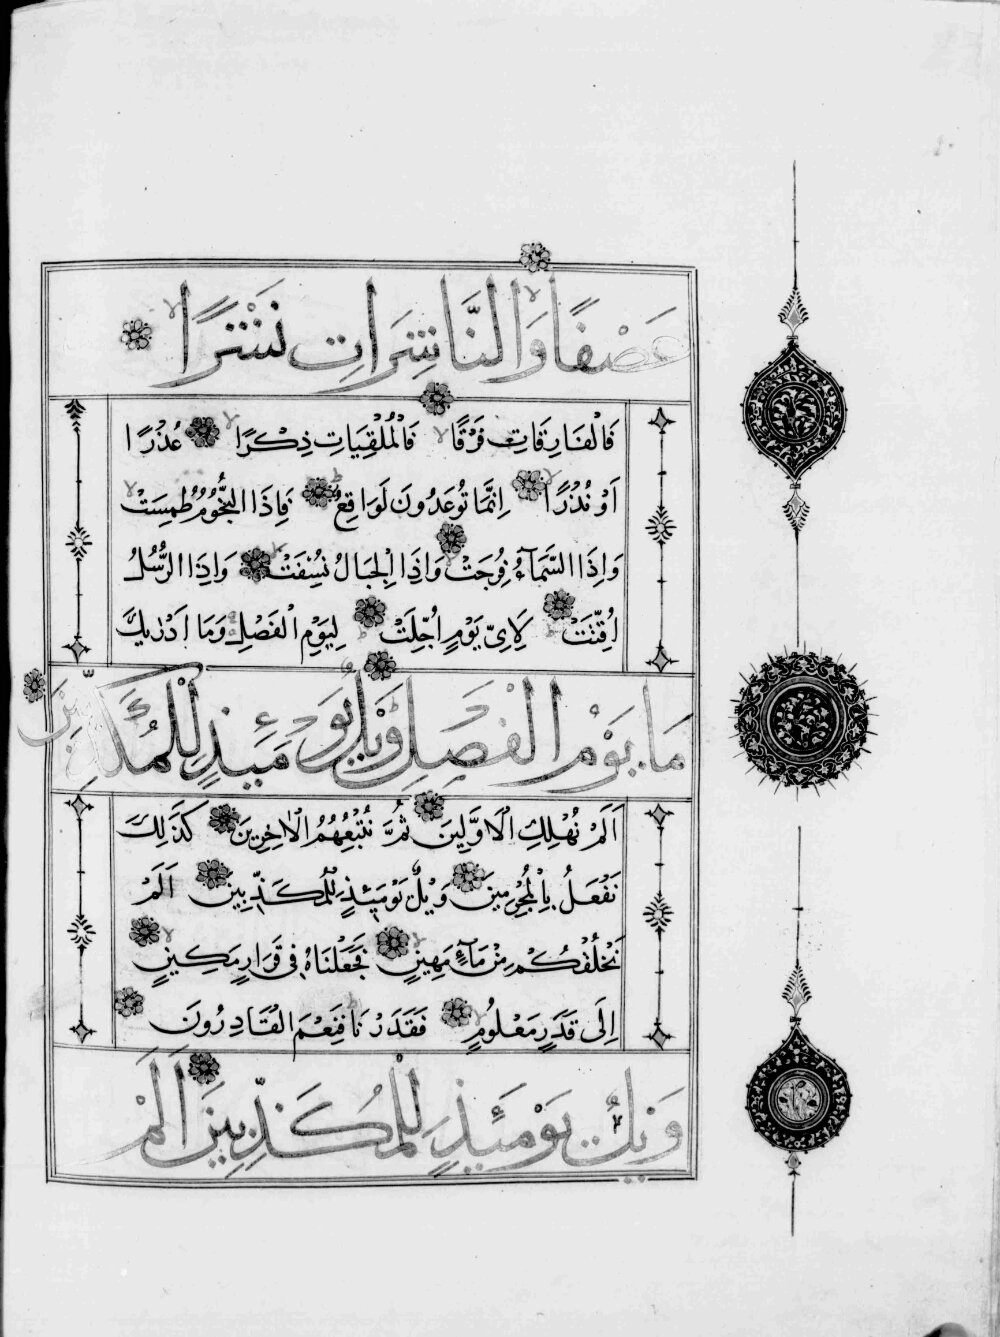 عَصْفًا وَالنَّاشِرَاتِ نَشْرًا
فَالْفَارِقَاتِ فَرْقًا فَالْمُلْقِيَاتِ ذِكْرًا عُذْرًا
اَوْ نُذْرًا اِنَّمَا تُوعَدُونَ لَوَاقِعٌ فَاِذَا النُّجُومُ طُمِسَتْ
وَاِذَا السَّمَآءُ فُرِجَتْ وَاِذَا الْجِبَالُ نُسِفَتْ وَاِذَا الرُّسُلُ
اُقِّتَتْ لِاَيِّ يَوْمٍ اُجِّلَتْ لِيَوْمِ الْفَصْلِ وَمَا اَدْرٰيكَ
مَا يَوْمُ الْفَصْلِ وَيْلٌ يَوْمَئِذٍ لِلْمُكَذِّبِينَ
اَلَمْ نُهْلِكِ الْاَوَّلِينَ ثُمَّ نُتْبِعُهُمُ الْاٰخِرِينَ كَذٰلِكَ
نَفْعَلُ بِالْمُجْرِمِينَ وَيْلٌ يَوْمَئِذٍ لِلْمُكَذِّبِينَ اَلَمْ
نَخْلُقْكُمْ مِنْ مَآءٍ مَهِينٍ فَجَعَلْنَاهُ فِى قَرَارٍ مَكِينٍ
اِلَى قَدَرٍ مَعْلُومٍ فَقَدَرْنَا فَنِعْمَ الْقَادِرُونَ
وَيْلٌ يَوْمَئِذٍ لِلْمُكَذِّبِينَ اَلَمْ